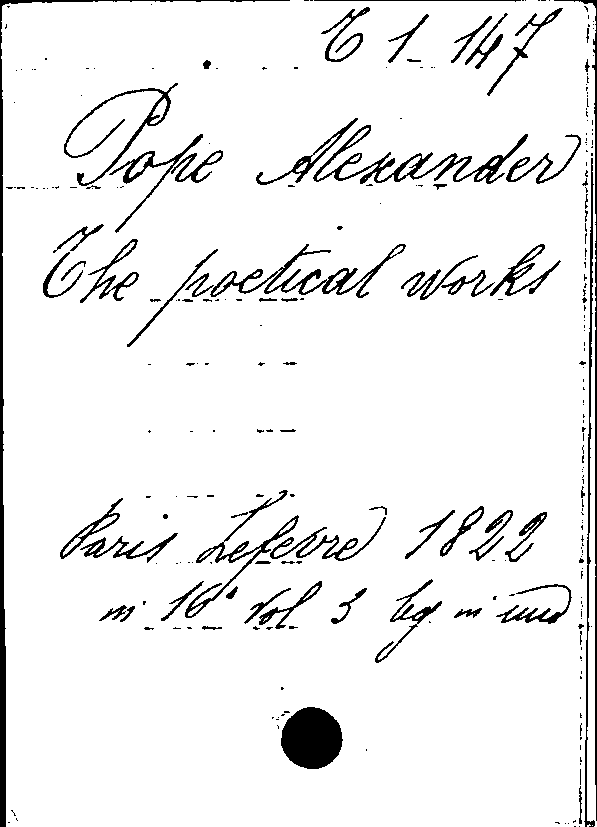 C 1 147
Pope Alexander
The poetical works
Paris Lefevre 1822
in 16° Vol 3 leg in uno